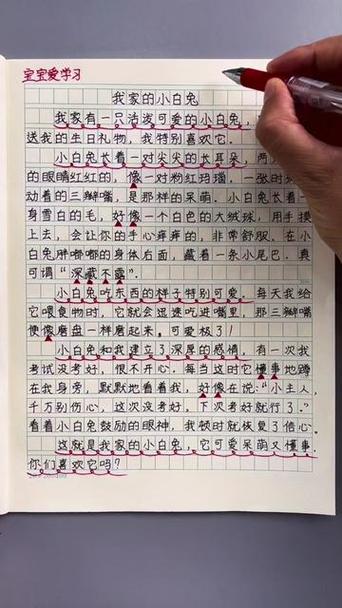 宝宝爱学习
我家的小白兔
我家有一只活泼可爱的小白兔，
送我的生日礼物，我特别喜欢它。
小白兔长着一对尖尖的长耳朵，两
的眼睛红红的，像一对粉红玛瑙，一张时
动着的三瓣嘴，是那样的呆萌。小白兔长着一
身雪白的毛，好像一个白色的大绒球，用手摸
上去，会让你的手心痒痒的，非常舒服。在小
白兔胖嘟嘟的身体后面，藏着一条小尾巴，真
可谓“深藏不露”。
小白兔吃东西的样子特别可爱。每天我给
它喂食物时，它就会迅速吃进嘴里，那三瓣嘴
便像磨盘一样磨起来，可爱极了！
小白兔和我建立了深厚的感情。有一次我
考试没考好，很不开心。每当这时它懂事地蹲
在我身旁，默默地看着我，好像在说：“小主人，
千万别伤心，这次没考好，下次考好就行了。”
看着小白兔鼓励的眼神，我顿时就恢复了信心。
这就是我家的小白兔，它可爱呆萌又懂事，
你们喜欢它吗？